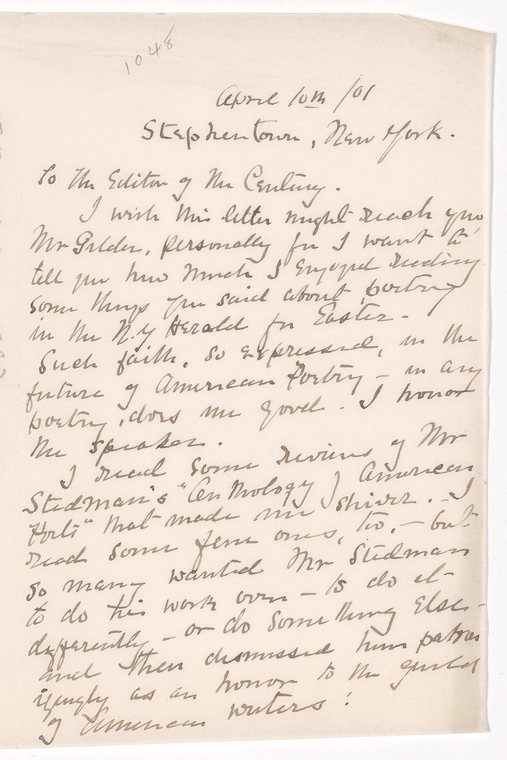 1048
April 10th /01
Stephentown, New York.
To the Editor of the Century.
I wish this letter might reach you
Mr Gilder, personally for I want to
tell you how much I enjoyed reading
some things you said about poetry
in the N.Y Herald for Easter -
Such faith, so expressed, in the
future of American Poetry - in any
poetry, does me good - I honor
the speaker.
I read some reviews of Mr
Stedman's "Anthology of American
Poets" that made me shiver. - I
read some fine ones, too, - but
so many wanted Mr Stedman
to do his work over - to do it
differently - or do something else -
and then dismissed him patron
izingly as an honor to the guild
of American writers!